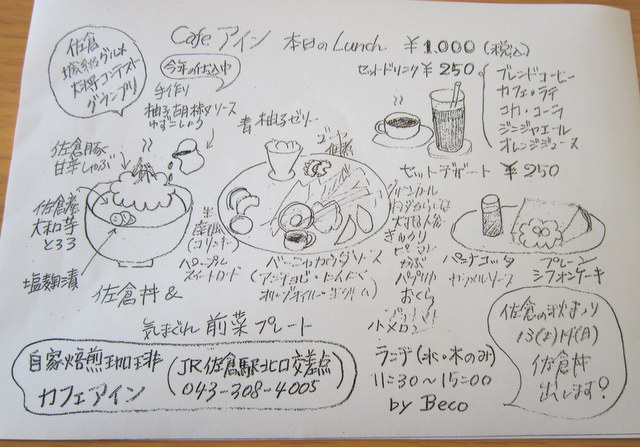 Cafe アイン 本日のLunch ¥1,000(税込)
佐倉
城下町グルメ
大将コンテスト
グランプリ
今年の仕込中
手作り
柚子胡椒ソース
ゆずこしょう
セットドリンク ¥250
ブレンドコーヒー
カフェ・ラテ
コカ・コーラ
ジンジャエール
オレンジジュース
青柚子ゼリー
ゴーヤー
佐倉豚
甘辛しゃぶ
佐倉産
大和芋
とろろ
塩麹漬
佐倉丼 &
生
パープル
スイートロード
バーニャカウダソース
(アンチョビ・にんにく
オリーブオイル・生クリーム)
グリーンカール
きゅうり
ピーマン
かぶ
パプリカ
おくら
小メロン
セットデザート ¥250
パンナコッタ
キャラメルソース
プレーン
シフォンケーキ
気まぐれ 前菜プレート
自家焙煎珈琲
カフェアイン
(JR佐倉駅北口交差点)
043-308-4005
ランチ(水・木のみ)
11:30〜15:00
by Beco
佐倉の秋まつり
13(土)14(日)
佐倉丼
出します!